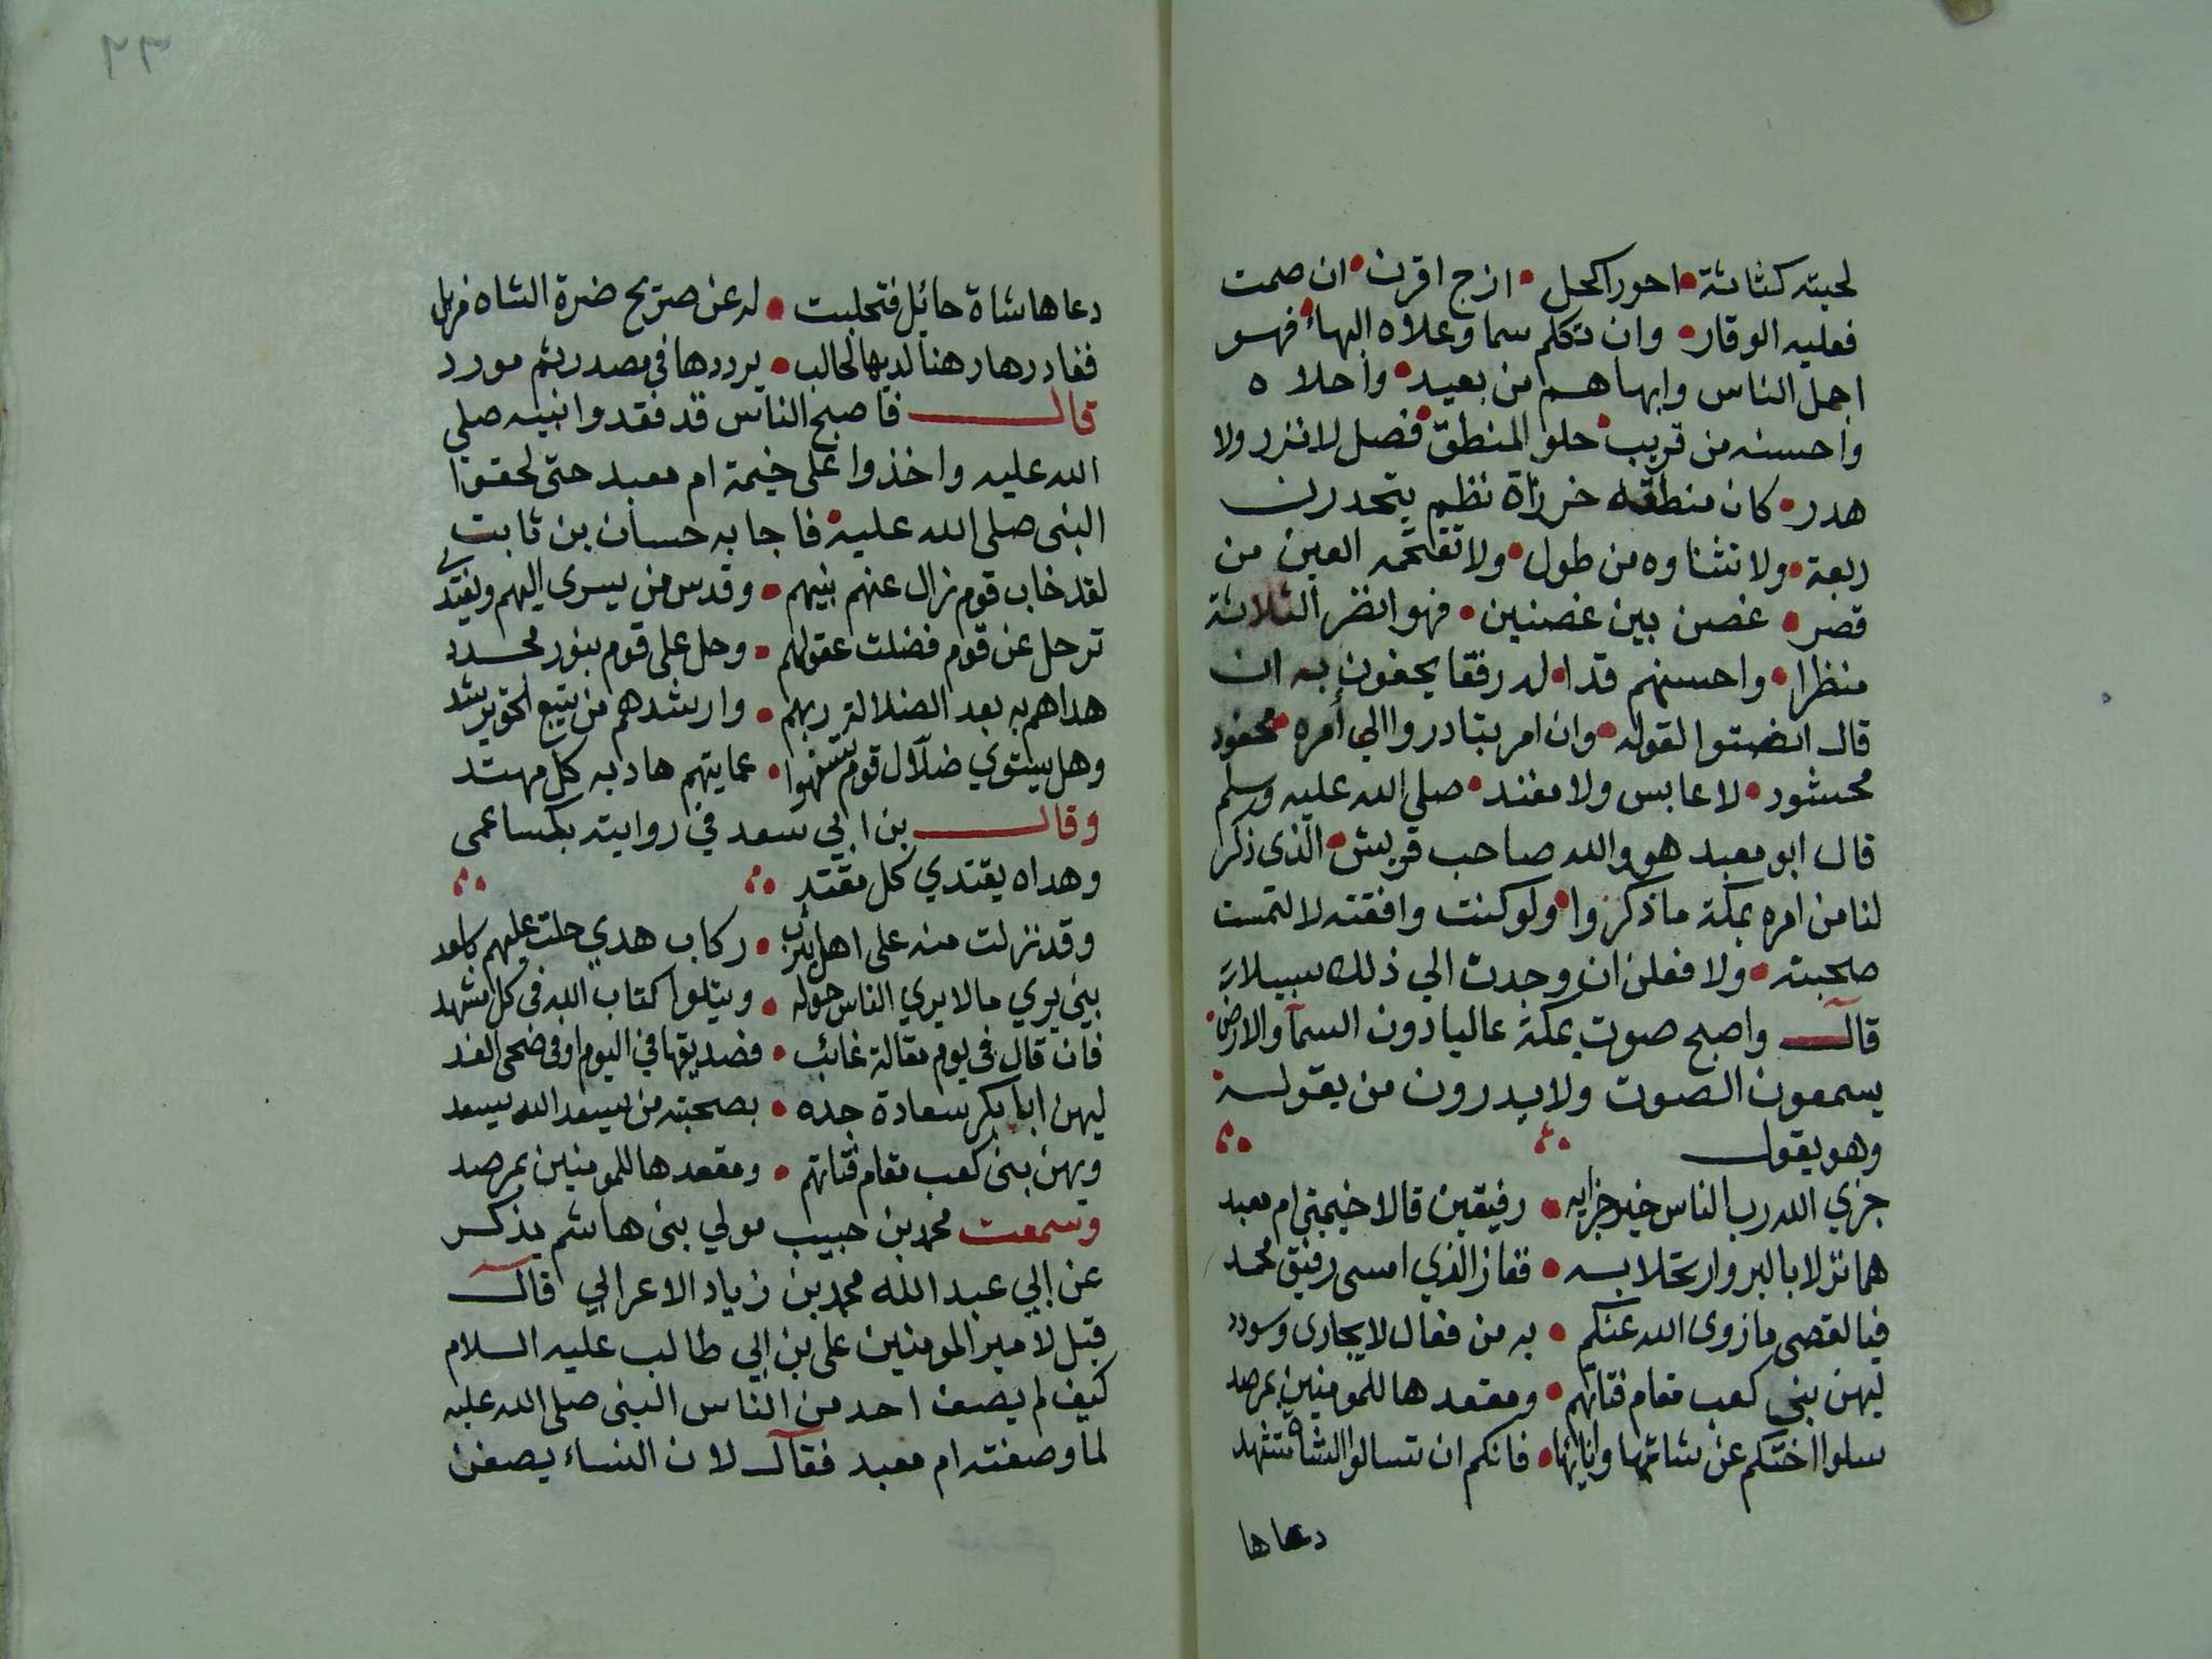 لحيته كثاثة • احور اكحل • ازج اقرن • ان صمت
فعليه الوقار • وان تكلم سما وعلاه البهاء • فهو
اجمل الناس وابهاهم من بعيد • واحلاه
واحسنه من قريب • حلو المنطق • فصل لا نزر ولا
هدر • كان منطقه خرزاة نظم يتحدرن
ربعة • ولا تشناوه من طول • ولا تقتحمه العين من
قصر • غصن بين غصنين • فهو انظر الثلاثة
منظرا • واحسنهم قدا • له رفقا يحفون به ان
قال انصتوا لقوله • وان امر بتادروا الي أمره • محفود
محشود • لا عابس ولا مفند • صلي الله عليه وسلم
قال ابو معبد هو والله صاحب قريش • الذي ذكر
لنا من امره بمكة ما ذكروا • ولو كنت وافقته لالتمست
صحبته • ولا فعلن ان وجدت الي ذلك سبيلا
قال واصبح صوت بمكة عاليا دون السمآ والارض •
يسمعون الصوت ولا يدرون من يقوله •
وهو يقول
جزي الله رب الناس خير جزايه • رفيقين قالا خيمتي ام معبد
هما نزلا بالبر وارتحلا به • ففاز الذي امسى رفيق محمد
فيا لقصي ما زوى الله عنكم • به من فعال لا يجارى وسودد
ليهن بني كعب مقام فتاتهم • ومقعدها للمومنين بمرصد
سلوا اختكم عن شاتها وانائها • فانكم ان تسالوا الشاة تشهد
دعاها
٢٣
دعاها شاة حائل فتحلبت • له عن صريح ضرة الشاه مزبل
فغادرها رهنا لديها لحالب • يرددها في مصدر ثم مورد
قال فاصبح الناس قد فقدوا نبيه صلي
الله عليه واخذوا على خيمة ام معبد حتى لحقوا
النبى صلى الله عليه • فاجابه حسان بن ثابت
لقد خاب قوم زال عنهم نبيهم • وقدس من يسرى اليهم ويغتدي
ترحل عن قوم فضلت عقولهم • وحل على قوم بنور مجدد
هداهم به بعد الضلالة ربهم • وارشدهم من يتبع الحق يرشد
وهل يستوي ضلّال قوم تسفهوا • عمايتهم هاد به كل مهتد
وقال بن ابي سعد في روايته بكسا عمى
وهداه يقتدي كل مقتد
وقد نزلت منه على اهل يثرب • ركاب هدي حلت عليهم باسعد
نبي يري مالا يري الناس حوله • ويتلوا كتاب الله في كل مشهد
فان قال في يوم مقالة غائب • فصديقها في اليوم او في ضحى الغد
ليهن ابا بكر سعادة جده • بصحبته من يسعد الله يسعد
ويهن بنى كعب مقام فتاتهم • ومقعدها للمومنين بمرصد
وسمعت محمد بن حبيب مولي بنى هاشم يذكر
عن ابي عبد الله محمد بن زياد الاعرابي قال
قيل لامير المومنين على بن ابي طالب عليه السلام
كيف لم يصف احد من الناس النبى صلى الله عليه
لما وصفته ام معبد فقال لان النساء يصفن